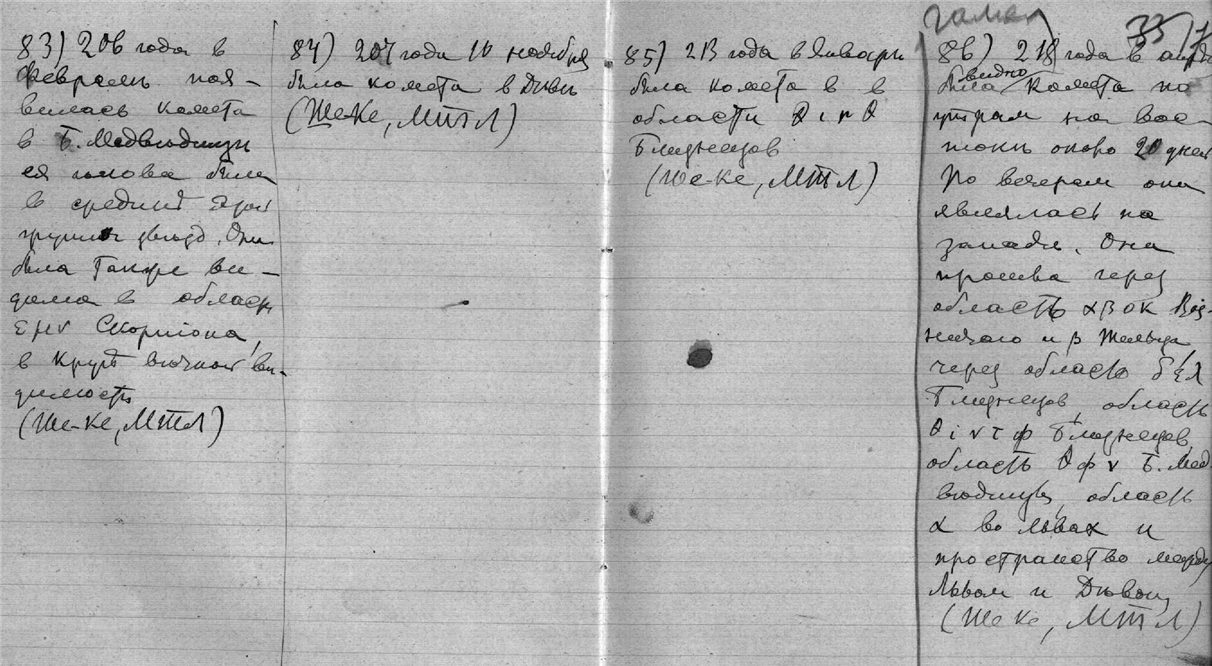 83) 206 года в
Февраль поя-
вилась комета
в Б. Медвѣдицѣ
ея голова была
в средине этой
группы звѣзд. Она
была также ви-
дима в область
ε μ ν Скорпиона,
в круге вѣчной ви-
димости
(Ше-Ке, МТЛ)
84) 207 года 10 ноября
была комета в Дѣвѣ
(Ше-Ке, МТЛ)
85) 213 года в Январѣ
была комета в в
области θ ι π θ
Близнецов
(Ше-Ке, МТЛ)
33
86) 218 года в апр
была видно комета по
утрам на вос-
токѣ около 20 дней
По вечерам она
являлась на
западѣ. Она
прошла через
область α β θ κ Воз-
ничаго и β Тельца,
через область δ ξ λ
Близнецов, область
θ ι ν τ φ Близнецов,
область θ φ ν Б. Мед
вѣдицы, область
α во львах и
пространство между
Львом и Дѣвою
(Ше Ке, МТЛ)